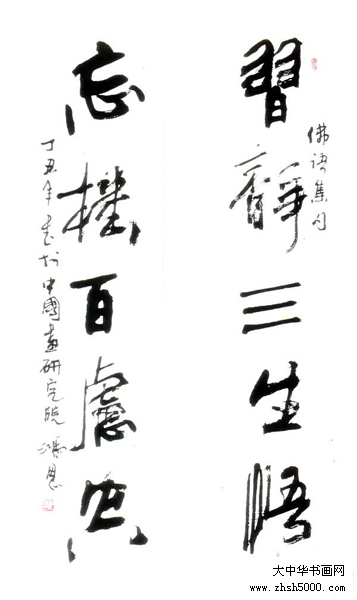 佛語集句
習靜三生悟
忘機百慮
丁丑年書於中國畫研究院
大中华书画网
www.zhsh5000.com